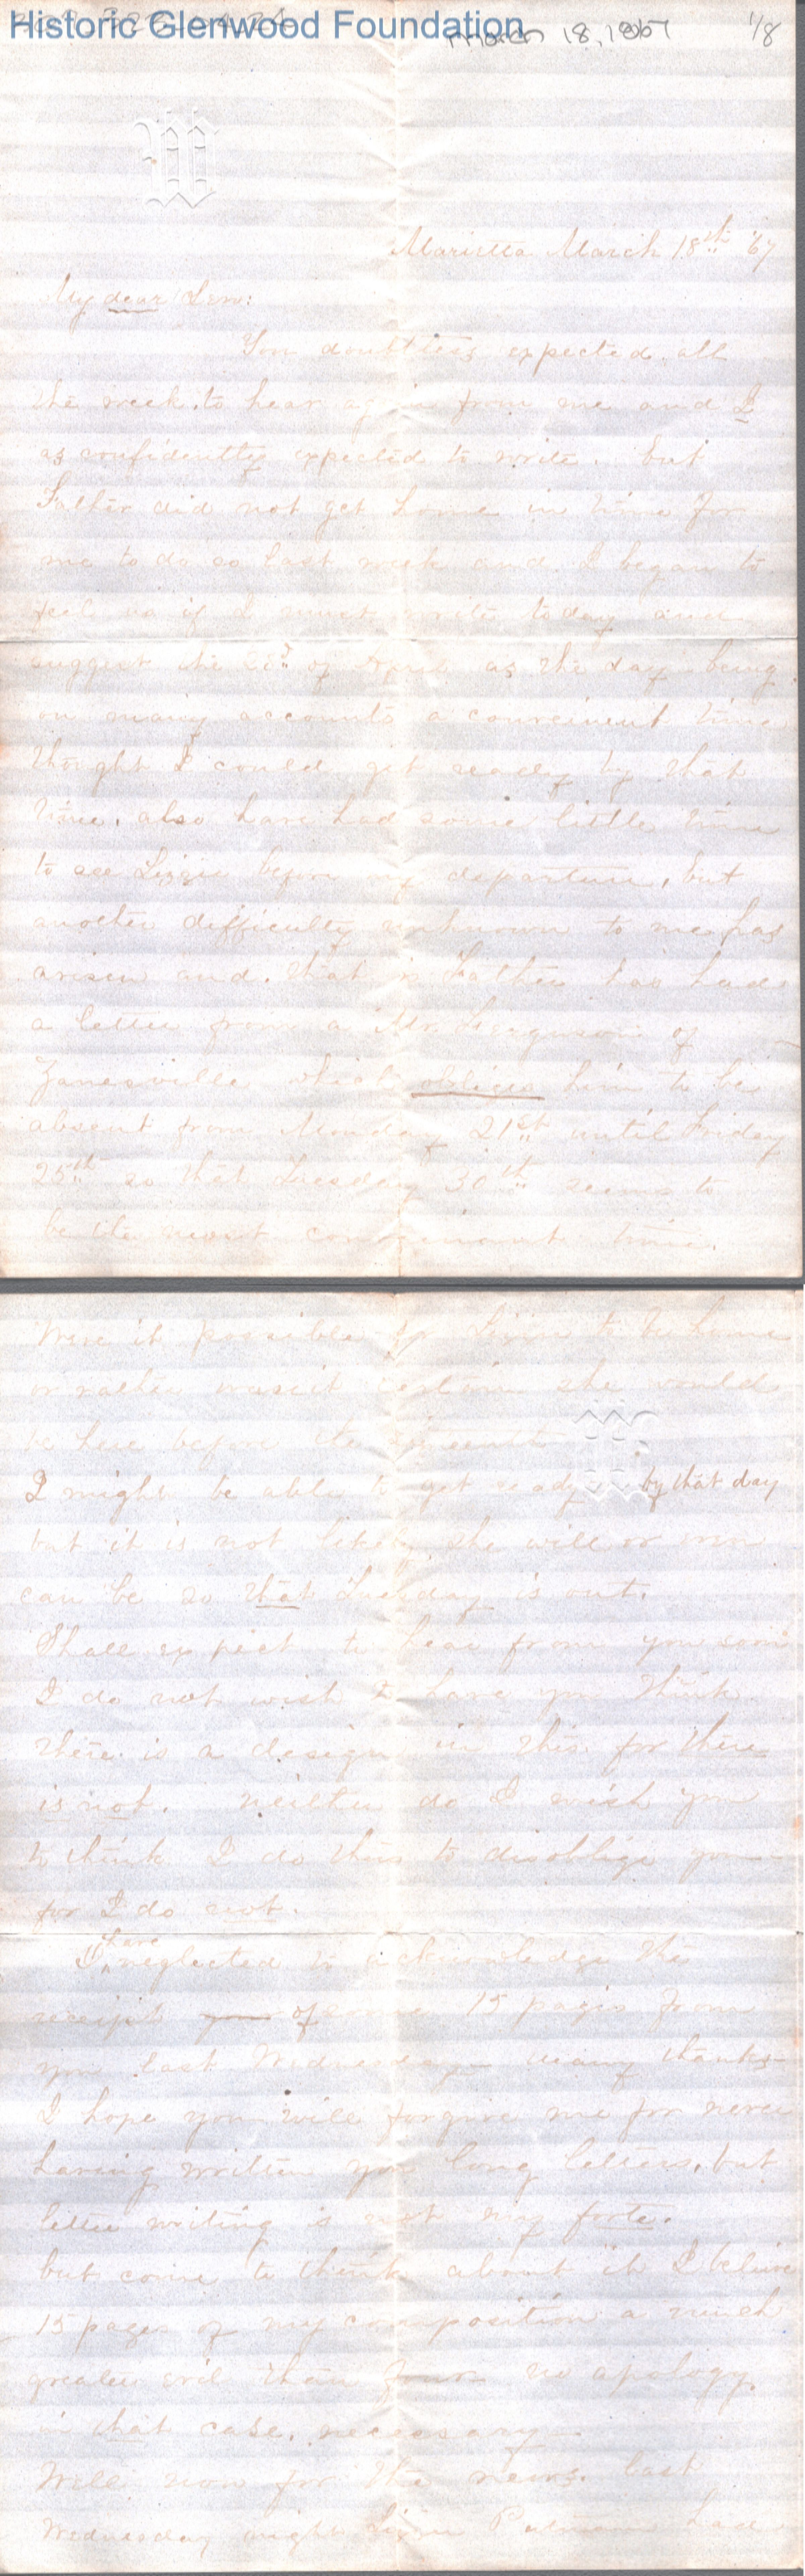 Historic Glenwood Foundation
March 18, 1867 1/8
W
Marietta March 18th '67
My dear Len:
You doubtless expected all
the week to hear again from me and I
as confidently expected to write. but
Father did not get home in time for
me to do so last week and I began to
feel as if I must write today and
suggest the 23d of April as the day being
on many accounts a convenient time
thought I could get ready by that
time, also have had some little time
to see Lizzie before my departure, but
another difficulty unknown to me has
arisen and that is Father has had
a letter from a Mr. Ferguson of
Zanesville which obliges him to be
absent from Monday 21st until Friday
25th so that Tuesday 30th seems to
be the next convenient time.
Were it possible for Lizzie to be home
or rather was it certain she would
be here before the
I might be able to get ready by that day
but it is not likely she will or even
can be so that Tuesday is out.
Shall expect to hear from you soon
I do not wish to have you think
there is a design in this for there
is not. neither do I wish you
to think I do this to disoblige you
for I do not.
I have neglected to acknowledge the
receipt of some 15 pages from
you last Wednesday many thanks
I hope you will forgive me for never
having written you long letters, but
letter writing is not my forte.
but come to think about it I believe
15 pages of my composition a much
greater evil than four no apology
in that case, necessary
Well now for the news. last
Wednesday night Lizzie Putnam had